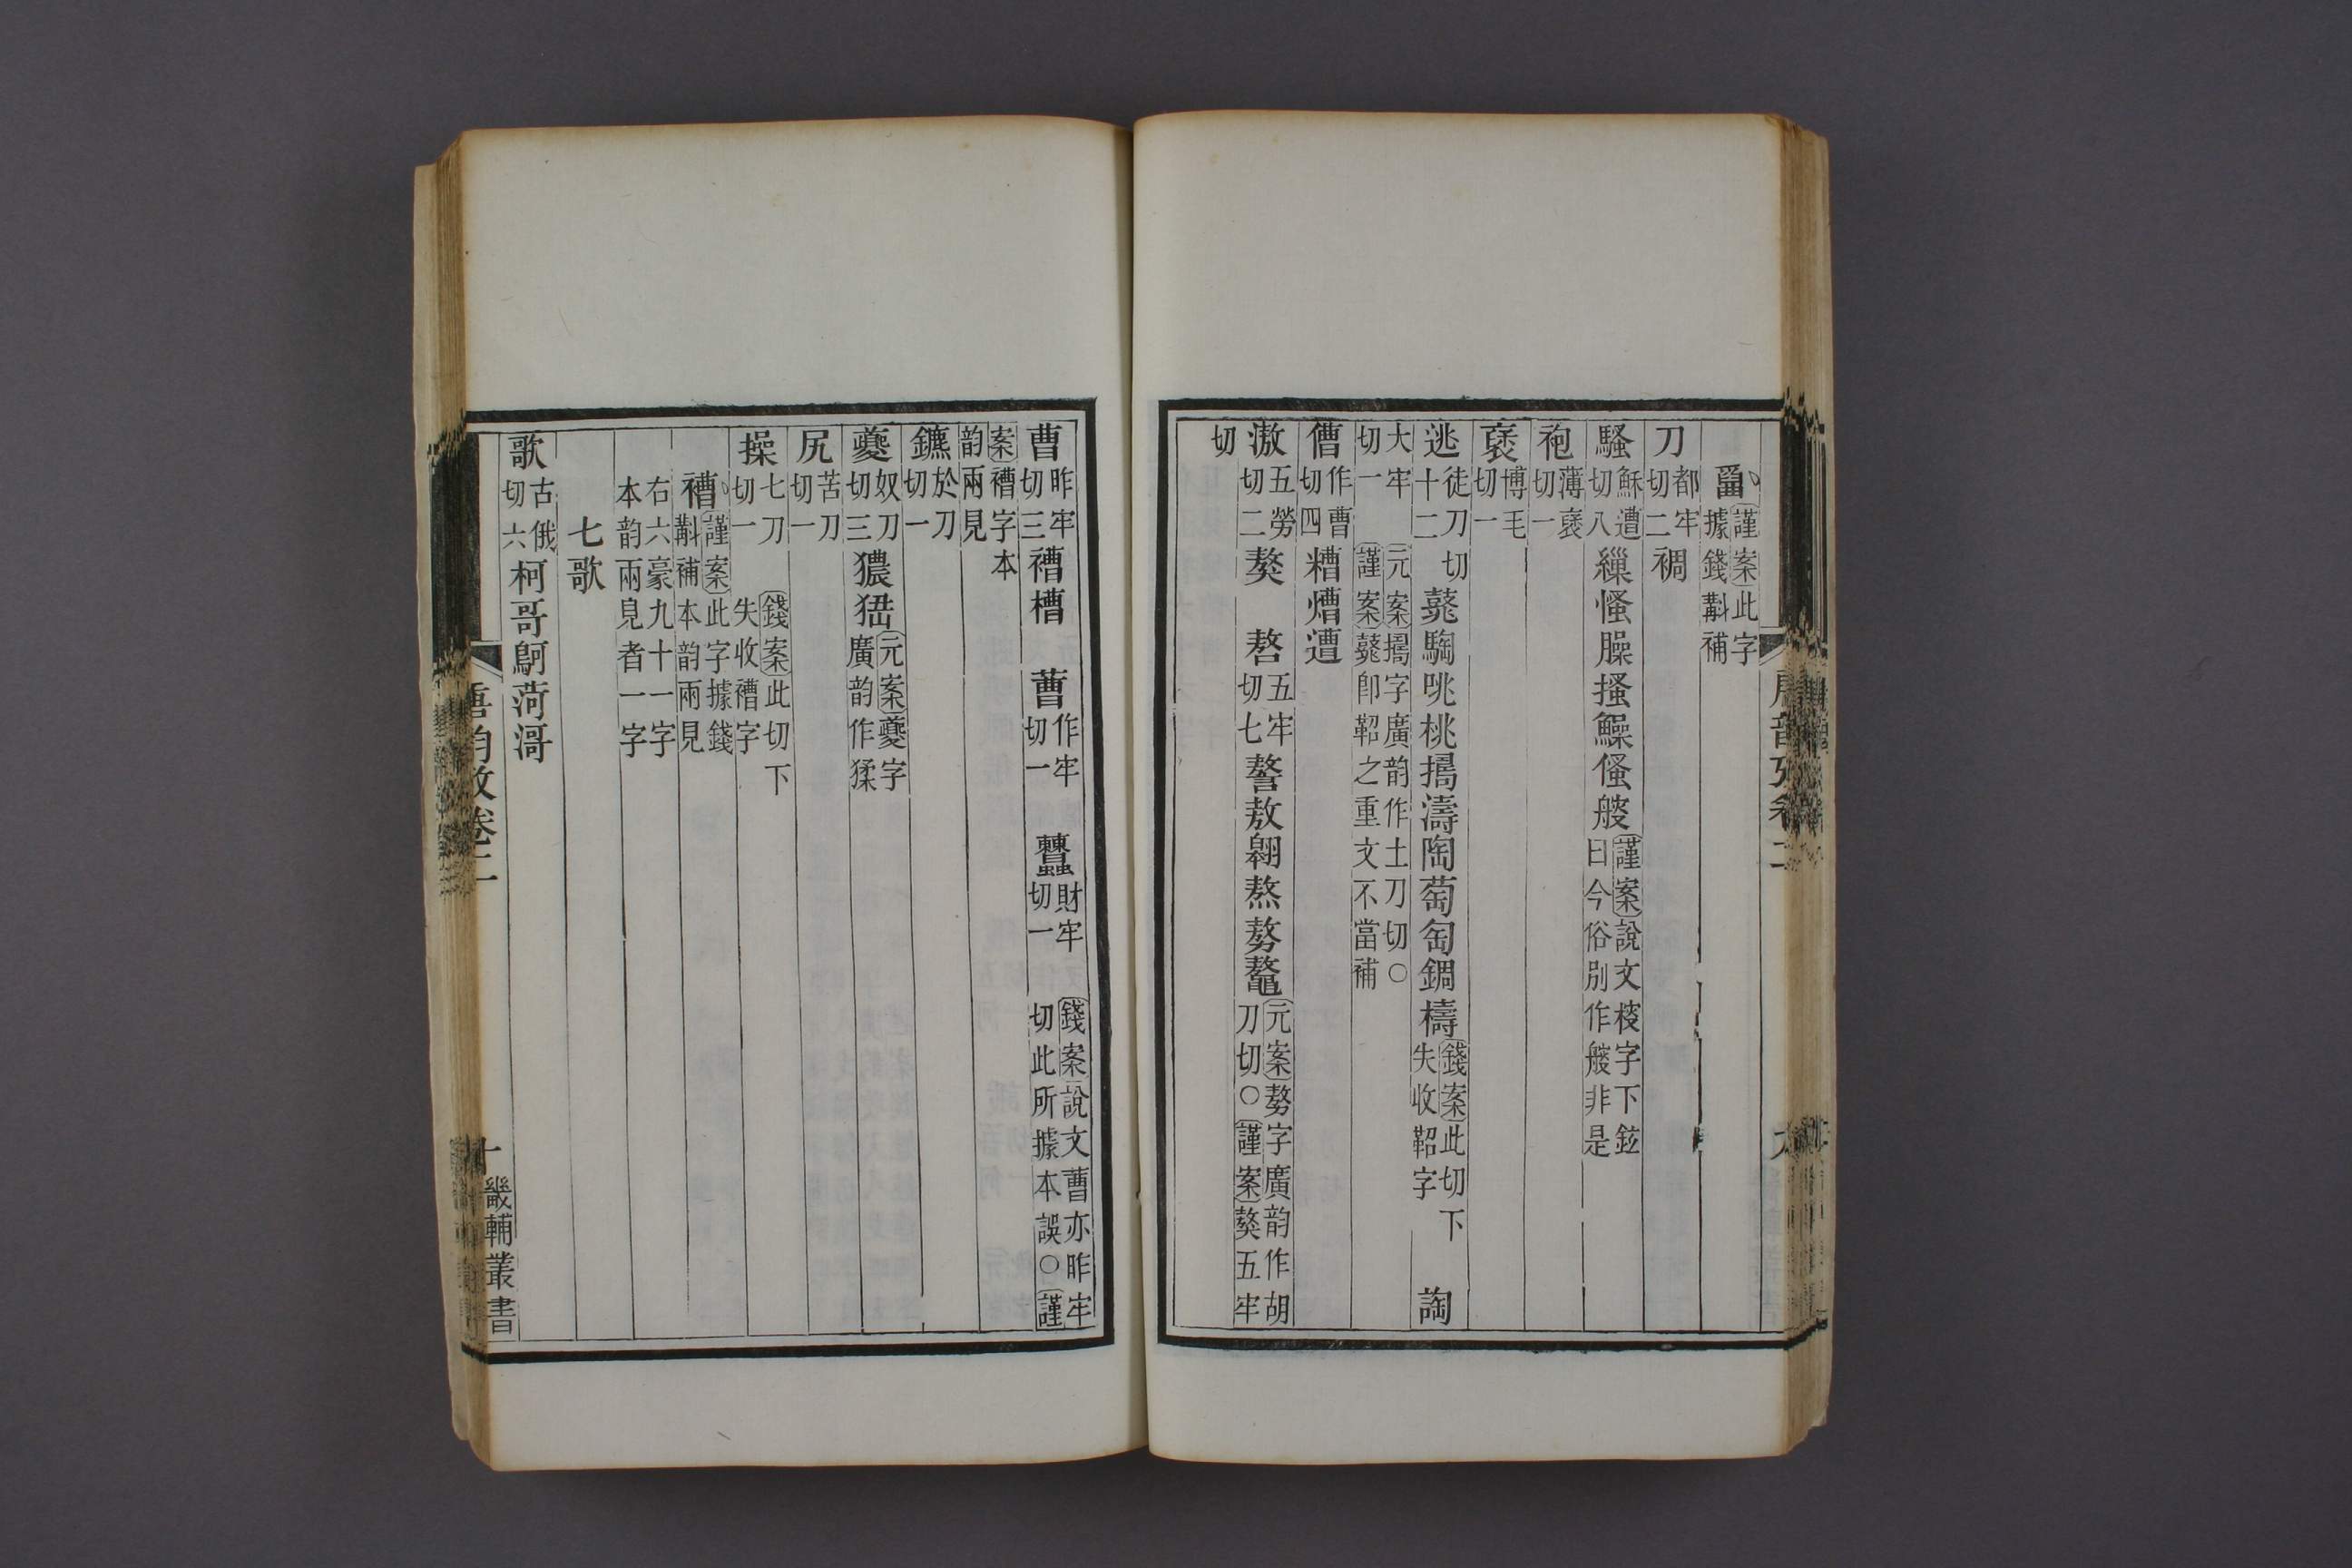 謹案此字據錢斠補
刀都牢切二裯
騷穌遭切八繅慅臊搔鱢傞艘謹案說文㮴字下鉉曰今俗別作艘非是
袍薄褒切一
襃博毛切一
逃徒刀切十二鼗騊咷桃搗濤陶萄匋錭檮錢案此切下失收鞀字 詾
大牢切一元案搗字廣韵作土刀切○謹案鼗卽鞀之重文不當補
傮作曹切四糟熷遭
滶五勞切二獒 𠴱五牢切七謷敖翱熬𠢕鼇元案𠢕字廣韵作胡刀切○謹案獒五牢
切
曹昨牢切三褿槽 蓸作牢切一 蠤財牢切一 錢案說文蓸亦昨牢切此所據本誤○謹
案褿字本韵兩見
鑣於刀切一
夒奴刀切三獶峱元案夒字廣韵作猱
尻苦刀切一
操七刀切一 錢案此切下失收褿字
褿謹案此字據錢斠補本韵兩見
右六豪九十一字本韵兩見者一字
七歌
歌古俄切六柯哥䳗菏滒
唐韵攷卷二
十
畿輔叢書